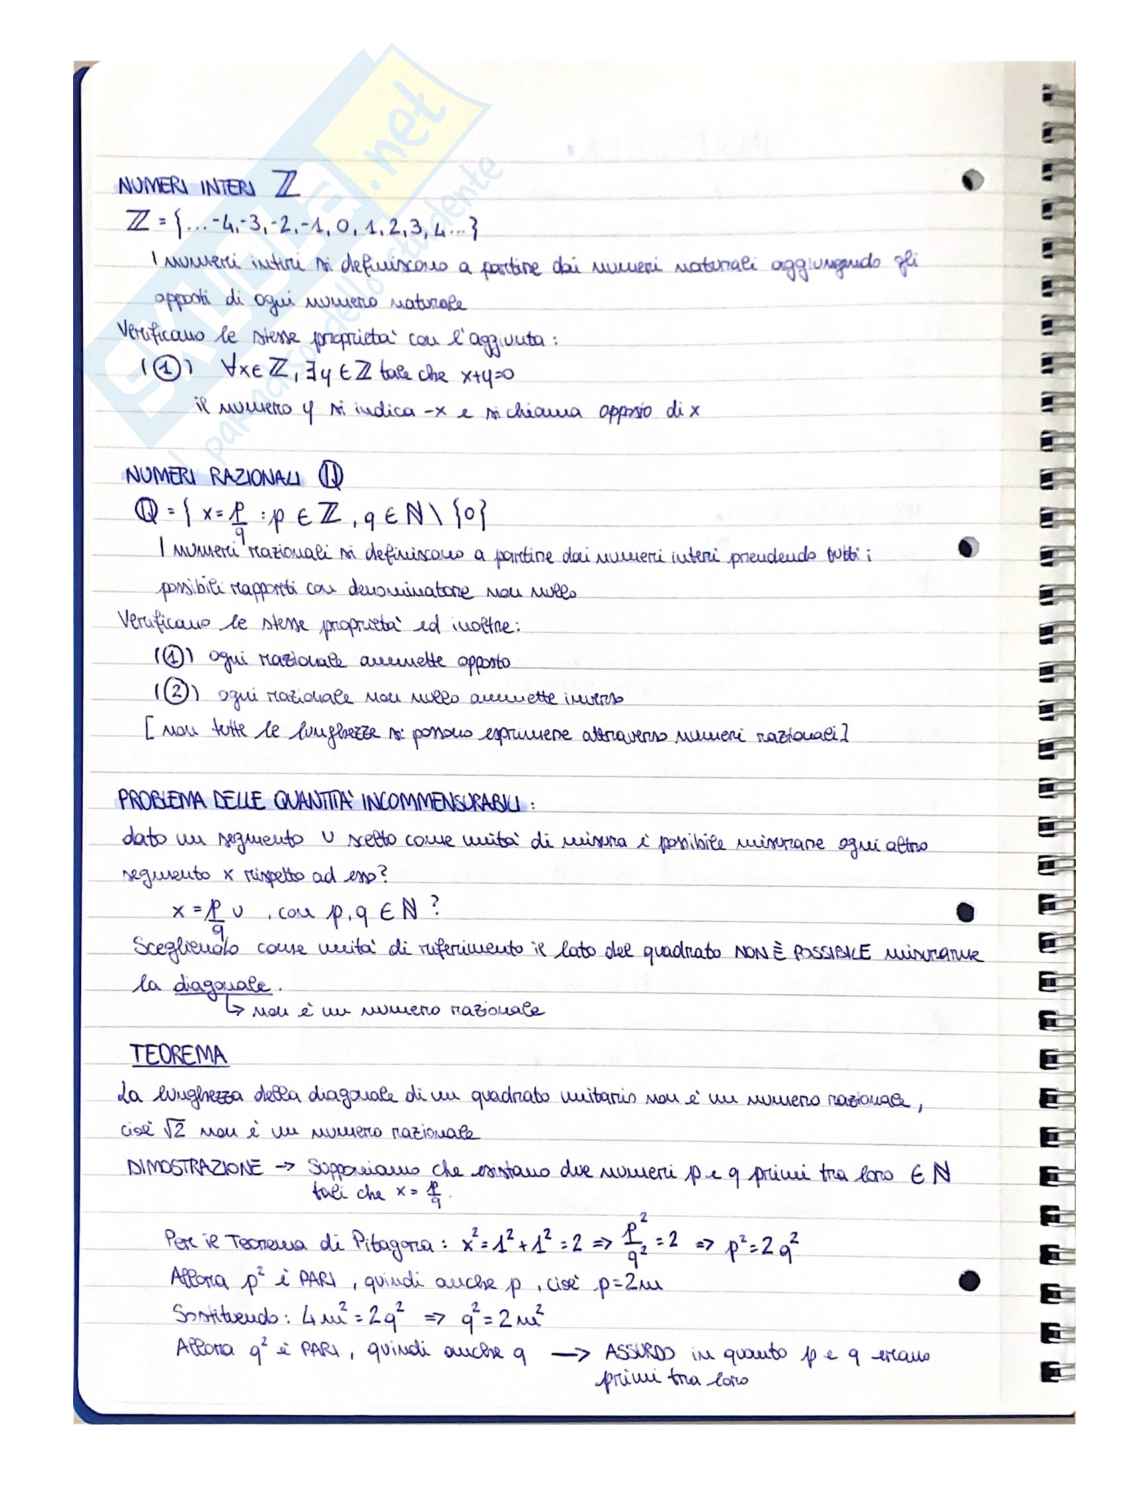 NUMERI INTERI ℤ
ℤ = {...-4,-3,-2,-1, 0, 1, 2, 3, 4...}
I numeri interi si definiscono a partire dai numeri naturali aggiungendo gli
opposti di ogni numero naturale
Verificano le stesse proprietà con l'aggiunta:
(①) ∀x∈ℤ, ∃y∈ℤ tale che x+y=0
il numero y si indica -x e si chiama opposto di x
NUMERI RAZIONALI ℚ
ℚ = { x = p/q : p ∈ ℤ, q ∈ ℕ \ {0}
I numeri razionali si definiscono a partire dai numeri interi prendendo tutti i
possibili rapporti con denominatore non nullo
Verificano le stesse proprietà ed inoltre:
(①) ogni razionale ammette opposto
(②) ogni razionale non nullo ammette inverso
[non tutte le lunghezze si possono esprimere attraverso numeri razionali]
PROBLEMA DELLE QUANTITA' INCOMMENSURABILI:
dato un segmento U scelto come unità di misura è possibile misurare ogni altro
segmento x rispetto ad esso?
x = p/q U, con p, q ∈ ℕ?
Scegliendo come unità di riferimento il lato del quadrato NON È POSSIBILE misurarne
la diagonale.
↳ non è un numero razionale
TEOREMA
La lunghezza della diagonale di un quadrato unitario non è un numero razionale,
cioè √2 non è un numero razionale
DIMOSTRAZIONE → Supponiamo che esistano due numeri p e q primi tra loro ∈ ℕ
tali che x = p/q.
Per il Teorema di Pitagora: x² = 1² + 1² = 2 ⇒ p²/q² = 2 ⇒ p² = 2q²
Allora p² è PARI, quindi anche p, cioè p=2m
Sostituendo: 4m² = 2q² ⇒ q² = 2m²
Allora q² è PARI, quindi anche q → ASSURDO in quanto p e q erano
primi tra loro
SKUOLA.net
il paradiso dello studente